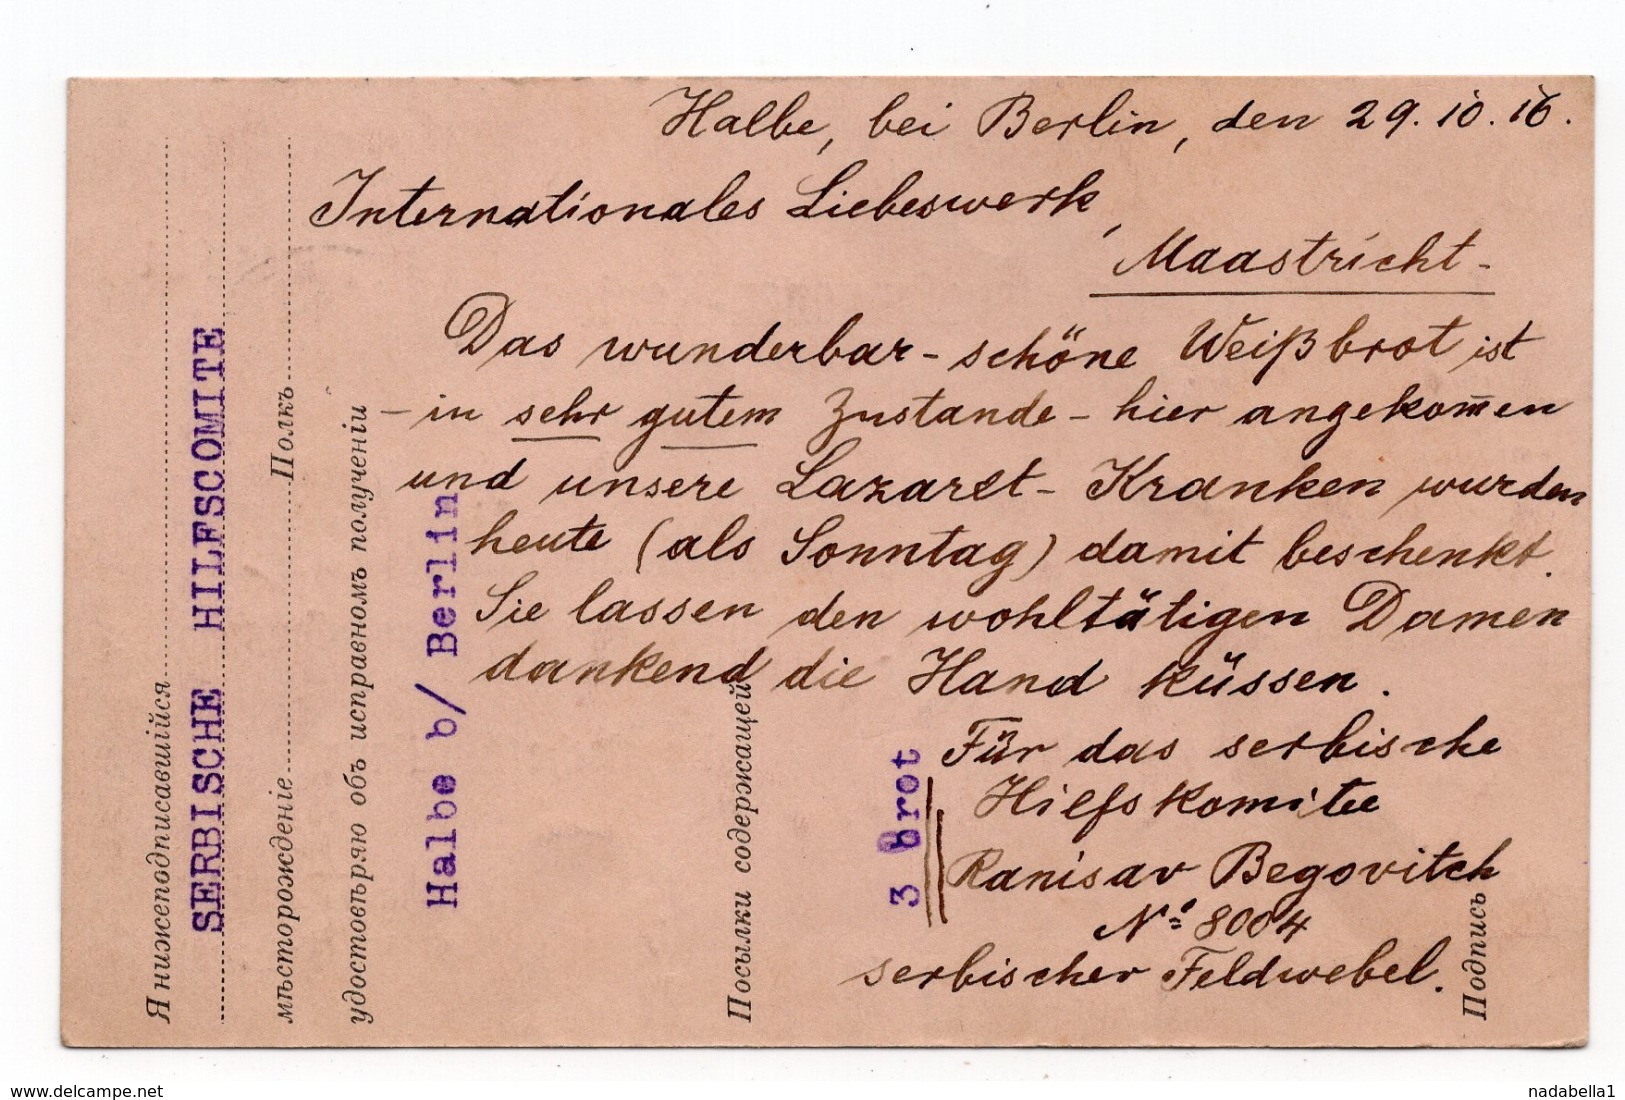 Halbe, bei Berlin, den 29.10.16.
Internationales Liebeswerk,
Maastricht-
Das wunderbar-schöne Weißbrot ist
-in sehr gutem Zustande-hier angekom̅en
und unsere Lazaret-Kranken wurden
heute (als Sonntag) damit beschenkt.
Sie lassen den wohltätigen Damen
dankend die Hand küssen.
Für das serbische
Hilfskomitee
Ranisav Begovitch
No 8004
serbischer Feldwebel.
Я нижеподписавшійся
SERBISCHE HILFSCOMITE
мѣсторожденіе Полкъ
удостовѣряю объ исправномъ полученіи
Halbe b/ Berlin
Посылки содержащей
3 brot
Подпись
www.delcampe.net
nadabella1